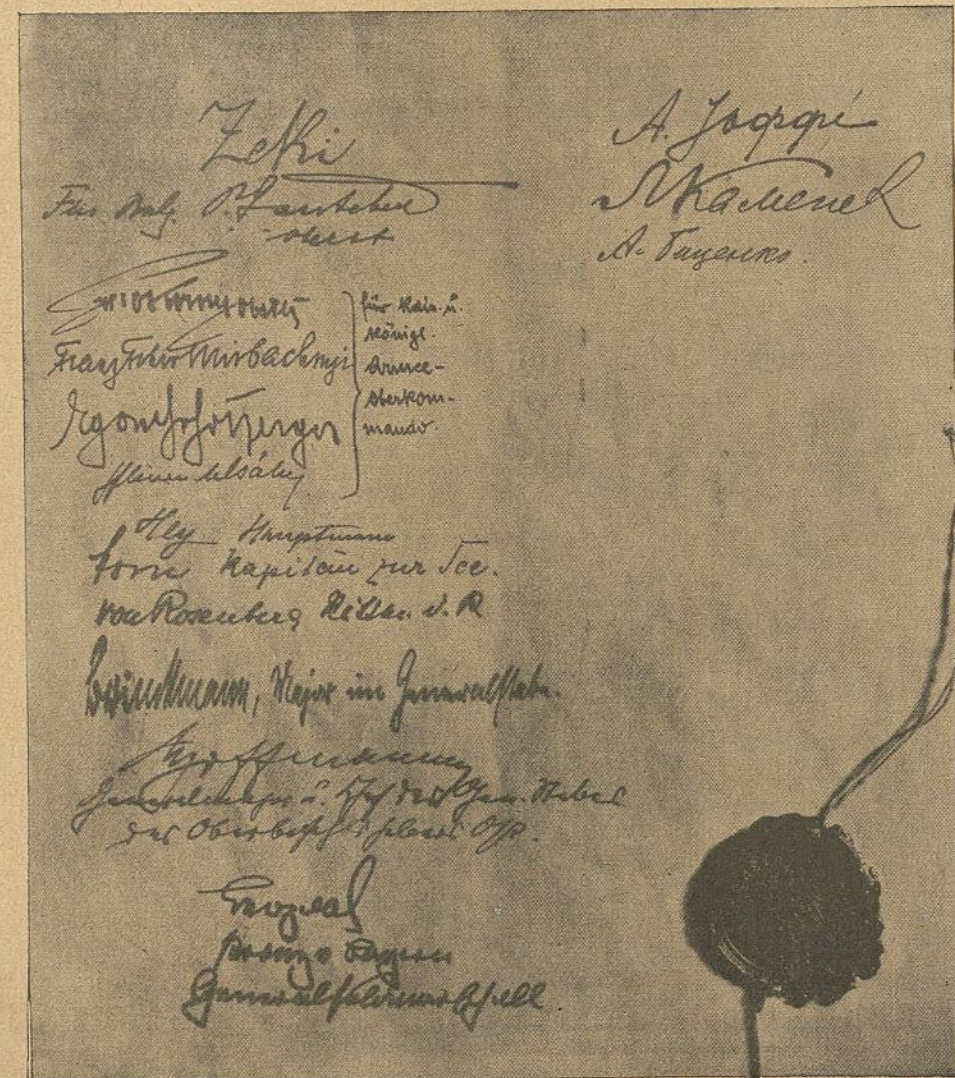 Zeki
Für Bulg. P. Gantschew
Oberst
für Kais. u.
Königl.
Armee-
Oberkom-
mando.
Hey Hauptmann
Horn Kapitän zur See.
von Rosenberg Rittm. d. R
Brinckmann, Major im Generalstabe.
Hoffmann
Generalmajor u. Chef des Gen. Stabes
des Oberbefehlshabers Ost.
Leopold
Prinz v Bayern
Generalfeldmarschall
А. Іоффе
Л Каменев
А. Биценко.